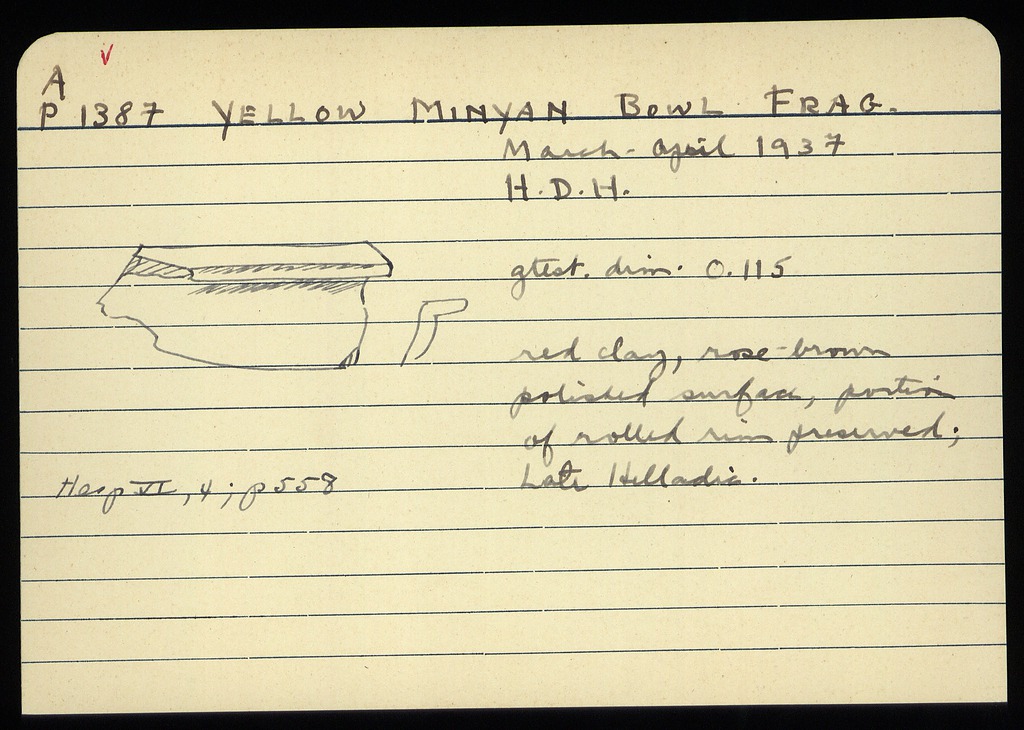 A
P 1387 YELLOW MINYAN BOWL FRAG.
March - April 1937
H.D.H.
gtest. dim. 0.115
red clay, rose-brown
polished surface, portion
of rolled rim preserved;
Late Helladic.
Hesp VI, 4; p 558